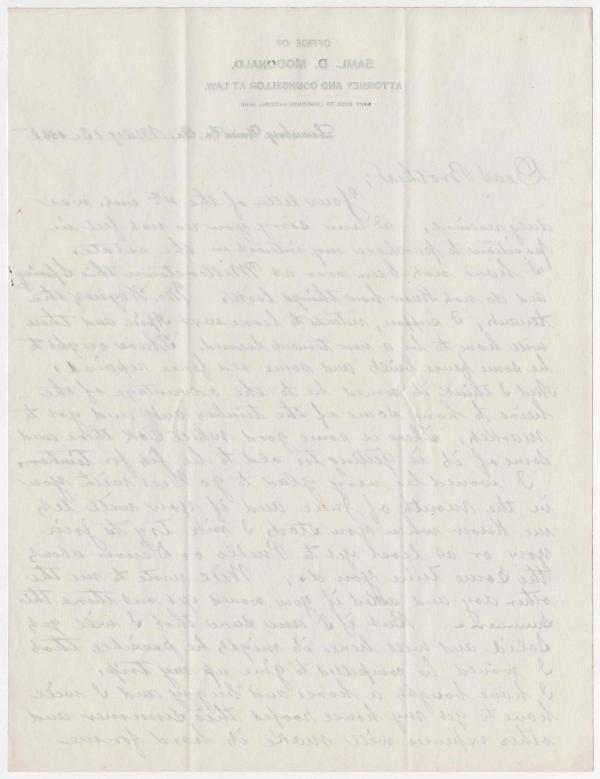 OFFICE OF
SAML. D. McDONALD,
ATTORNEY AND COUNSELLOR AT LAW,
NEXT DOOR TO LEWISBURG NATIONAL BANK
Lewisburg, Union Co. Pa., May 13 1885
Dear Brother;
Your letter of the inst. was
duly received, I am sorry you do not feel in
position to purchase any interest in the estate.
I have not been over at this Spring
and do not know how things look. Mr. the
tenant, I suppose, intends to leave next April and there
will have to be a new tenant secured. There ought to
be some fence built and some old fence repaired.
And I think it would be to the advantage of the
heirs to have some of the timber cut and got to
market. There is some good white oak there and
some of it is getting too old to be fit for timber.
I would be very glad to go West with you
in the month of June and if you will let
me know when you start I will try to join
you or at least get to Pueblo or Denver about
the same time you do. Will wrote to me the
other day and asked if you would get out there this
summer. But if I am sure that I will get
and meet here it might be possible that
I would be compelled to give up my trip.
I have bought a horse and buggy and I will
have to get my house roofed this summer and
other expenses will make it hard for me